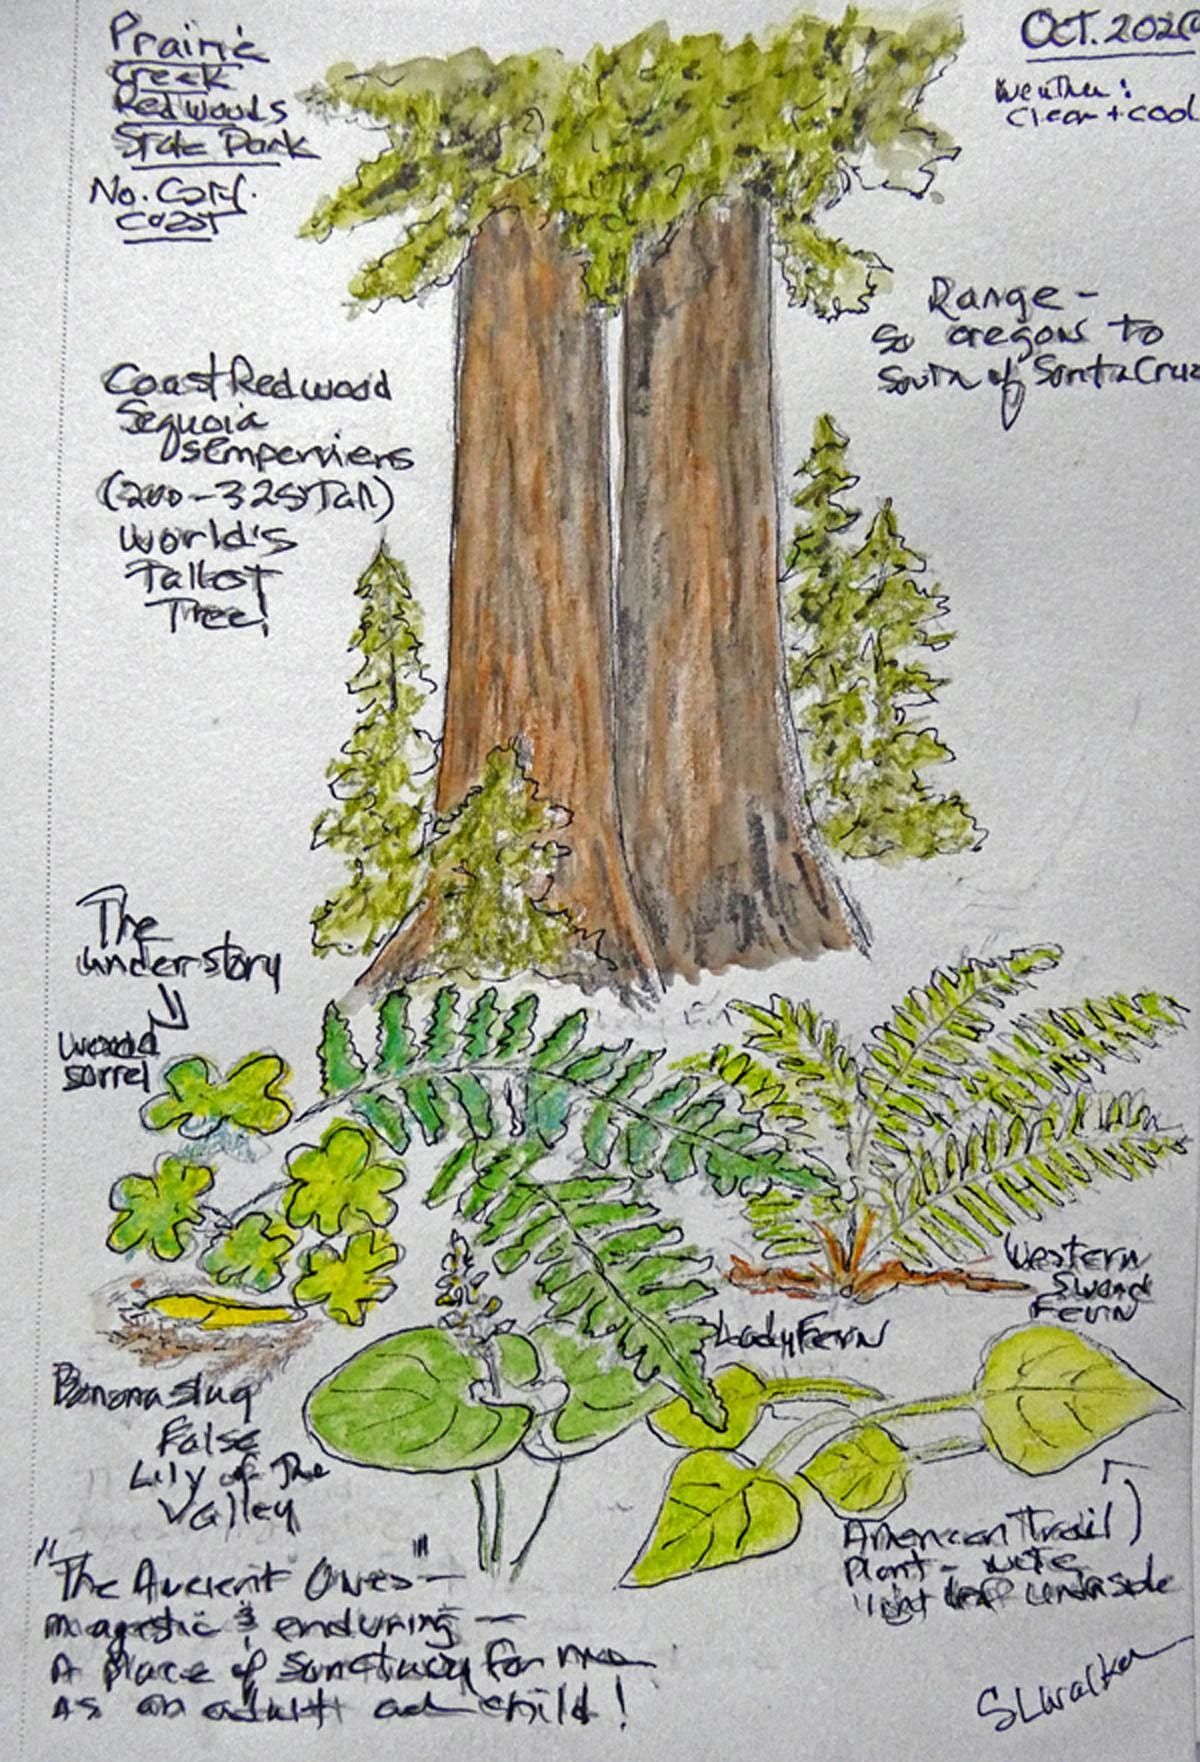 Prairie
Creek
Redwoods
State Park
No. Calif.
Coast
Oct. 202
Weather:
Clear + cool
Range -
So oregon to
South of Santa Cruz
Coast Redwood
Sequoia
sempervirens
(200-325' Tall)
World's
Tallest
Tree!
The
understory
wood
sorrel
Western
Sword
Fern
Lady Fern
Banana slug
False
Lily of The
Valley
American (Trail)
Plant - note
light leaf underside
"The Ancient Ones" -
magestic & enduring -
A Place of Sanctuary for me
As an adult and child!
SLWalker